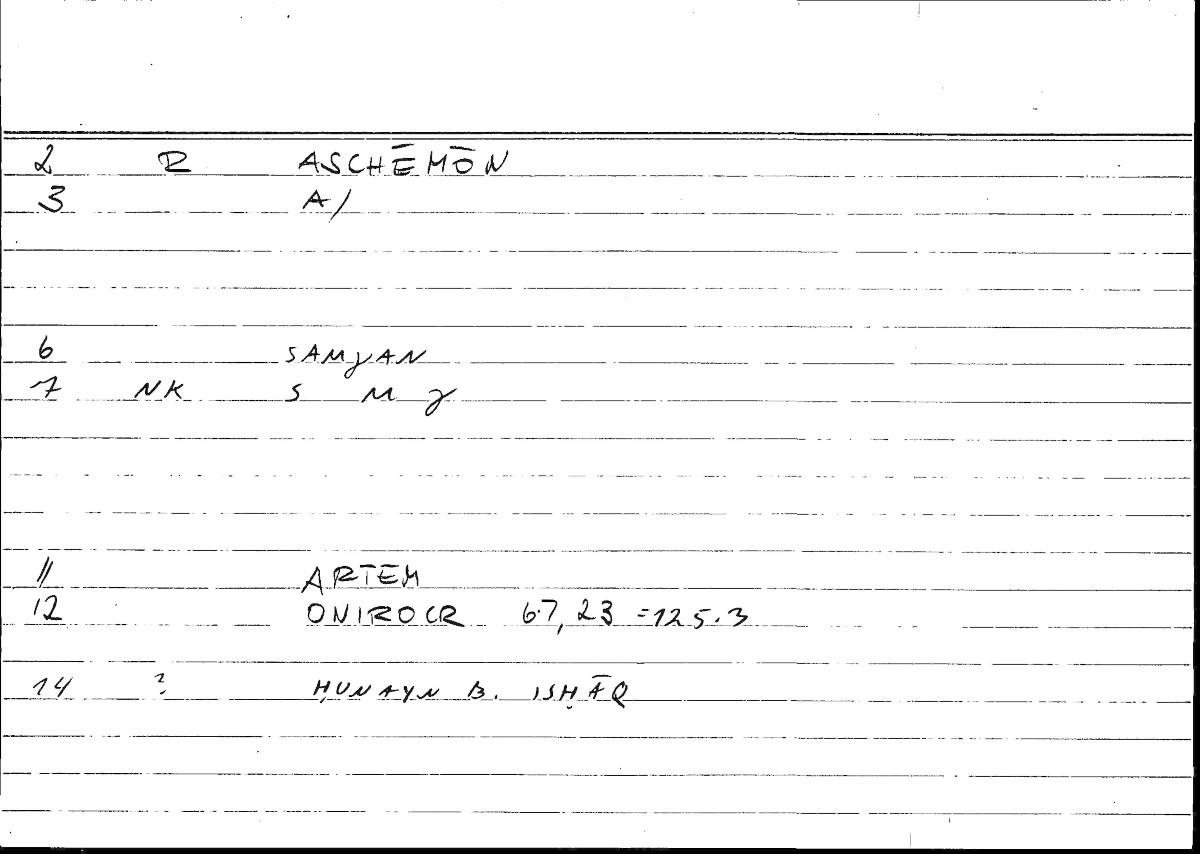 2 R ASCHĒMŌN
3 A/
6 SAMɣAN
7 NK S M ɣ
11 ARTEM
12 ONIROCR 67,23 =125.3
14 ? ḤUNAYN B. ISḤĀQ